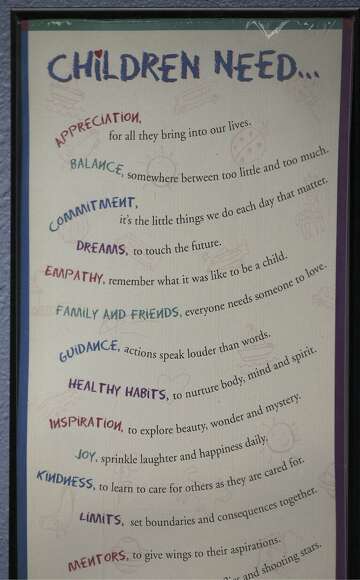 CHILDREN NEED...
APPRECIATION,
for all they bring into our lives.
BALANCE, somewhere between too little and too much.
COMMITMENT,
it's the little things we do each day that matter.
DREAMS, to touch the future.
EMPATHY, remember what it was like to be a child.
FAMILY AND FRIENDS, everyone needs someone to love.
GUIDANCE, actions speak louder than words.
HEALTHY HABITS, to nurture body, mind and spirit.
INSPIRATION, to explore beauty, wonder and mystery.
JOY, sprinkle laughter and happiness daily.
KINDNESS, to learn to care for others as they are cared for.
LIMITS, set boundaries and consequences together.
MENTORS, to give wings to their aspirations.
and shooting stars.